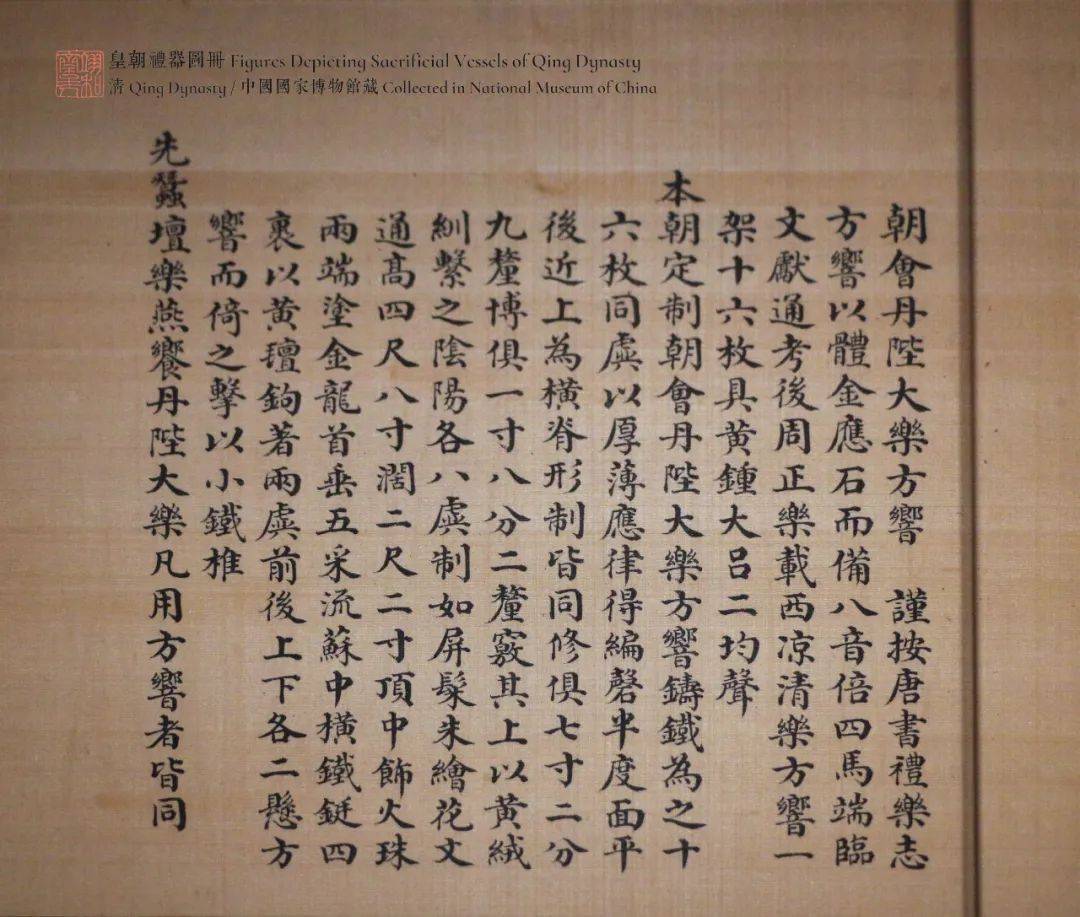 皇朝禮器圖冊 Figures Depicting Sacrificial Vessels of Qing Dynasty
清 Qing Dynasty / 中國國家博物館藏 Collected in National Museum of China
朝會丹陛大樂方響 謹按唐書禮樂志
方響以體金應石而備八音倍四馬端臨
文獻通考後周正樂載西凉清樂方響一
架十六枚具黃鍾大呂二均聲
本朝定制朝會丹陛大樂方響鑄鐵為之十
六枚同虡以厚薄應律得編磬半度面平
後近上為橫脊形制皆同修俱七寸二分
九釐博俱一寸八分二釐竅其上以黃絨
紃繫之陰陽各八虡制如屏髹朱繪花文
通高四尺八寸濶二尺二寸頂中飾火珠
兩端塗金龍首垂五采流蘇中橫鐵鋌四
裹以黃氊鉤著兩虡前後上下各二懸方
響而倚之擊以小鐵椎
先蠶壇樂燕饗丹陛大樂凡用方響者皆同